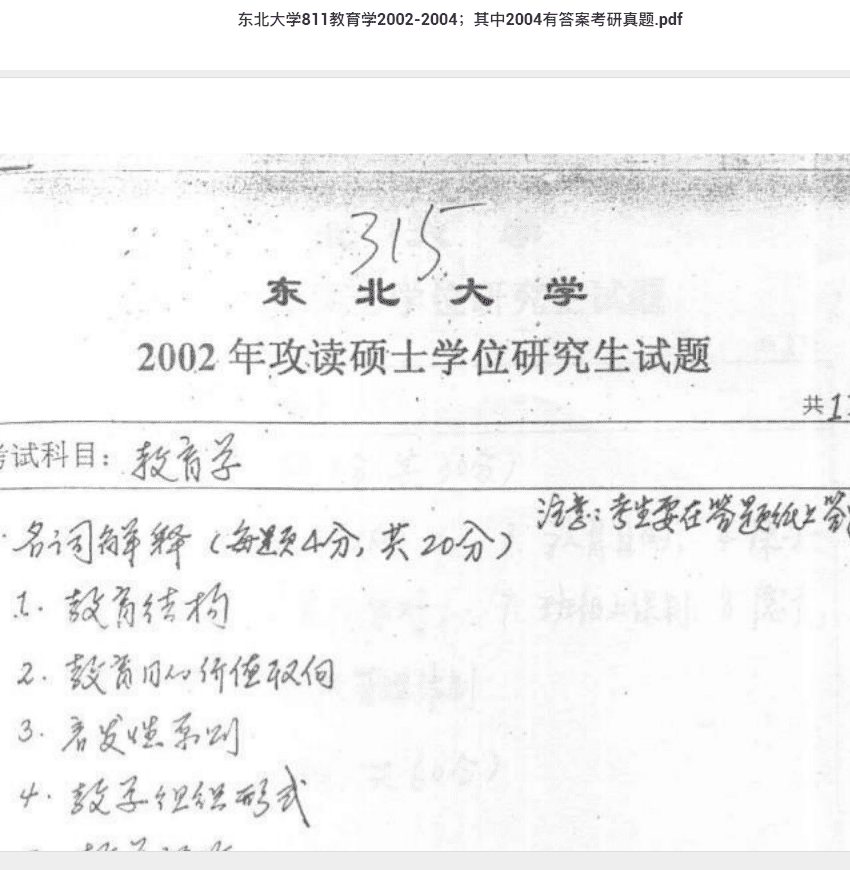 东北大学811教育学2002-2004；其中2004有答案考研真题.pdf
315
东 北 大 学
2002 年攻读硕士学位研究生试题
共1
考试科目：教育学
注意：考生要在答题纸上答
名词解释（每题4分，共20分）
1. 教育结构
2. 教育目的价值取向
3. 启发性原则
4. 教学组织形式